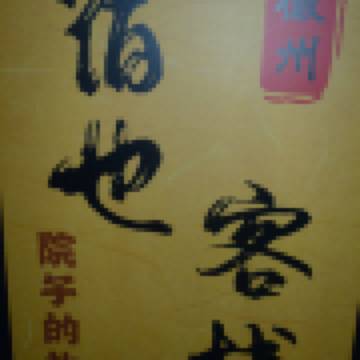 徽州
客栈
宿也
院子的